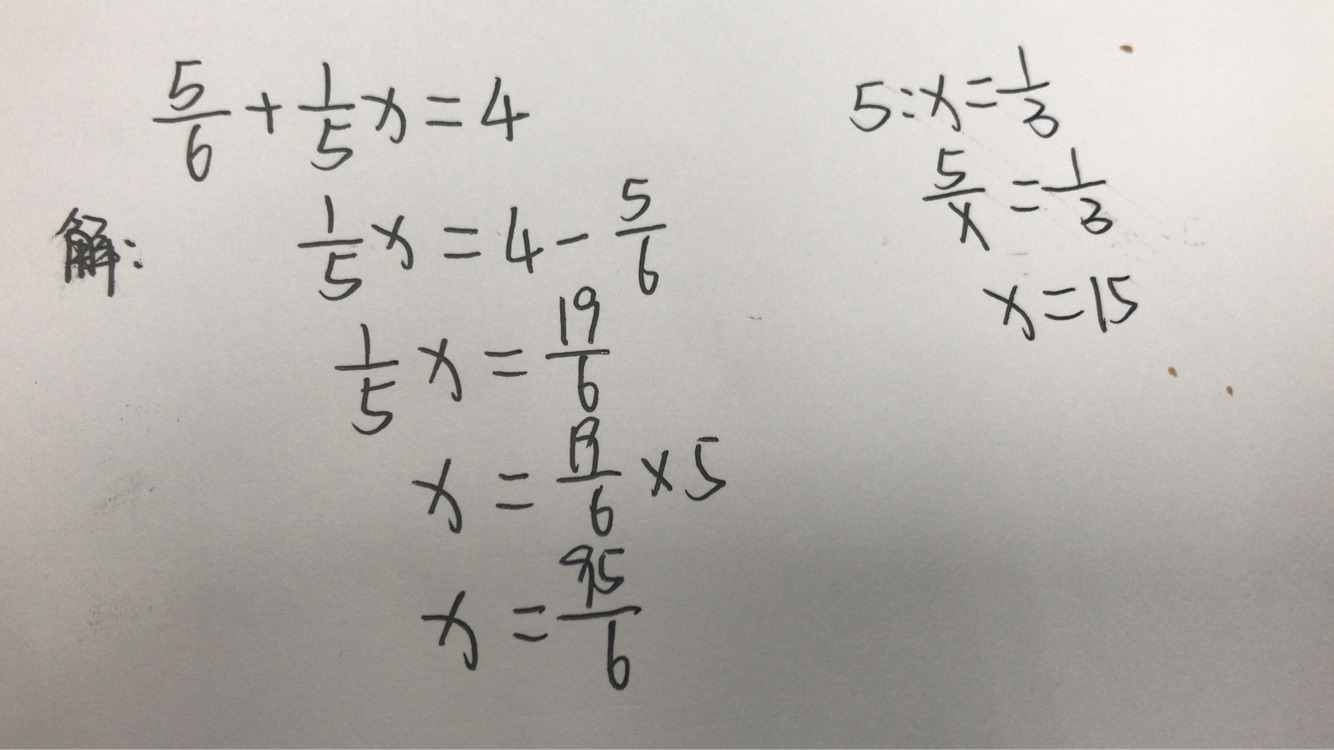 5/6 + 1/5 x = 4
解: 1/5 x = 4 - 5/6
1/5 x = 19/6
x = 19/6 × 5
x = 95/6
5:x = 1/3
5/x = 1/3
x = 15